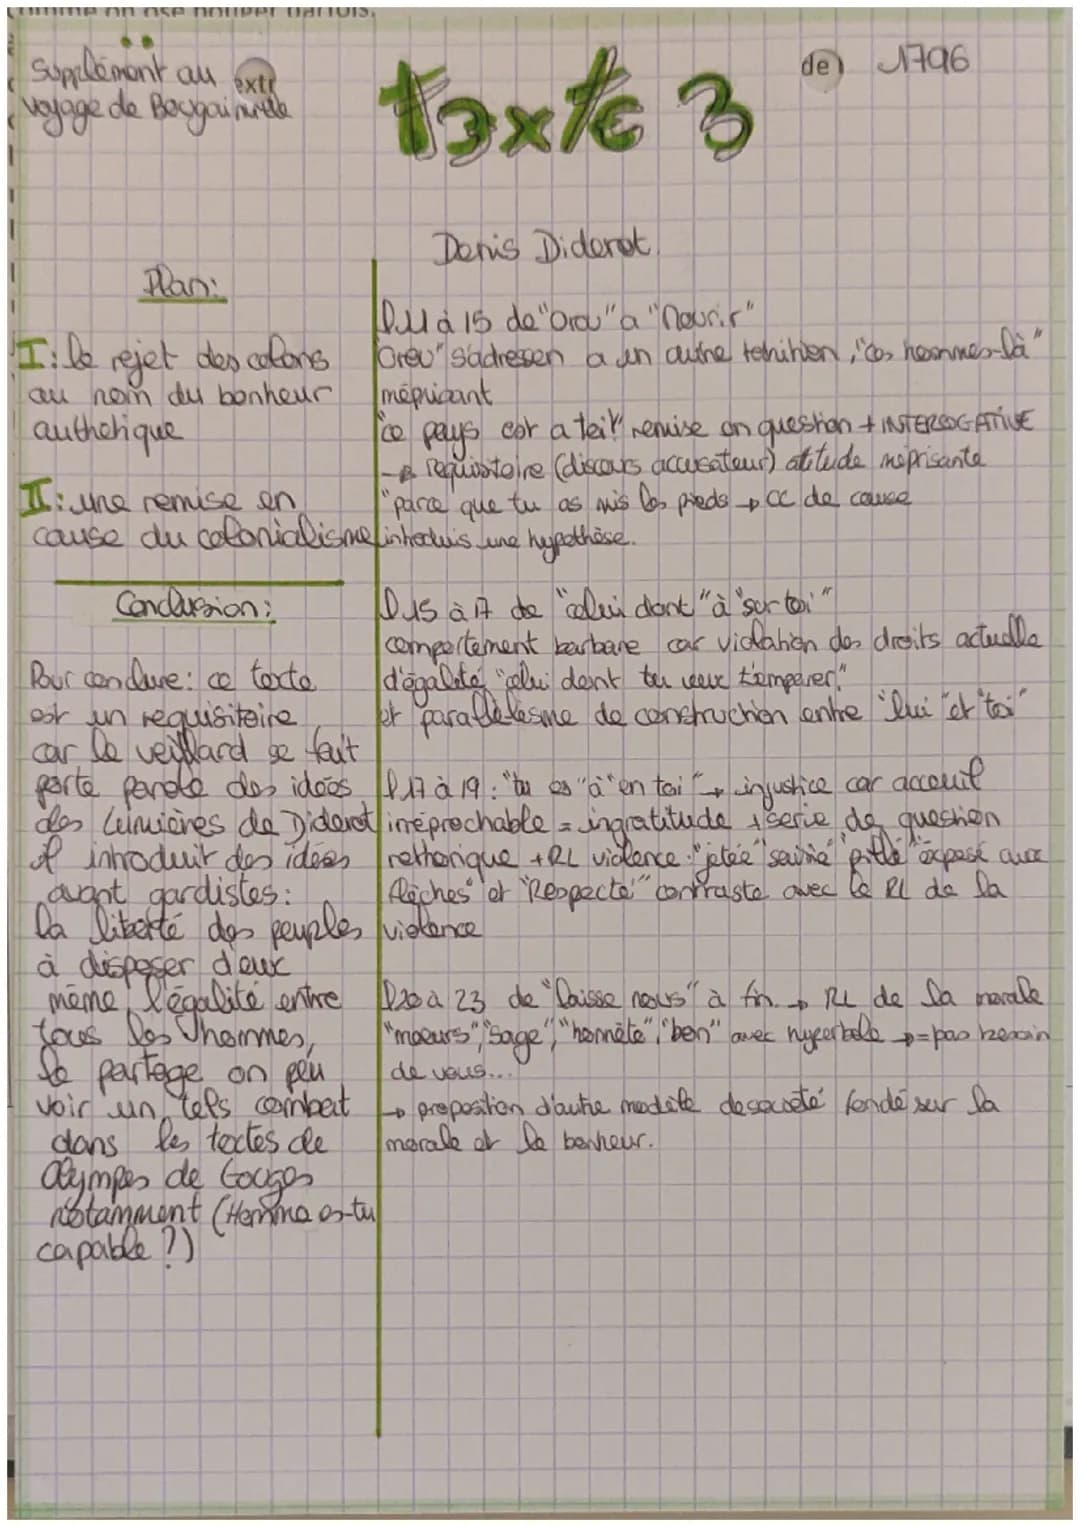 comme on ose nouper parfois.
Supplément au
voyage de Bougainville
extr
texte 3
de)
1796
Denis Diderot.
Plan:
I: le rejet des colons
au nom du bonheur
authetique
II: une remise en
cause du colonialisme
Conclusion:
Pour conclure: ce texte
est un requisitoire
car le veillard se fait
porte parole des idées
des Lumières de Diderot
il introduit des idées
avant gardistes:
la liberté des peuples
à disposer d'eux
même, l'égalité entre
tous les hommes,
le partage on peu
voir un tels combat
dans les textes de
Olympes de Gouges
notamment (Homme es-tu
capable ?)
l.11 à 15 de "Orou" a "Nourir"
"Oreu" s'adressen a un autre tehitien, "ces hommes-là"
méprisant
"ce pays est a toi!" remise en question + INTEROGATIVE
→ requistoire (discours accusateur) atitude méprisante
"parce que tu as mis les pieds → CC de cause
introduis une hypothèse.
l.15 à 17 de "celui dont" à "sur toi"
comportement barbare car violation des droits actuelle
d'égalité "celui dont tu veux t'emparer."
et parallelesme de construction entre "lui" et "toi"
l.17 à 19: "tu es" à "en toi" → injustice car acceuil
irréprochable = ingratitude + serie de question
rethorique + RL violence: "jetée" "saisie" "pillé" "exposé aux
flèches" et "Respecté" contraste avec le RL de la
violence
l20 à 23 de "laisse nous" à fin. → RL de la morale
"moeurs", "sage", "honnête", "bon" avec hyperbole → = pas besoin
de vous...
→ proposition d'autre modèle de societé fondé sur la
morale et le bonheur.